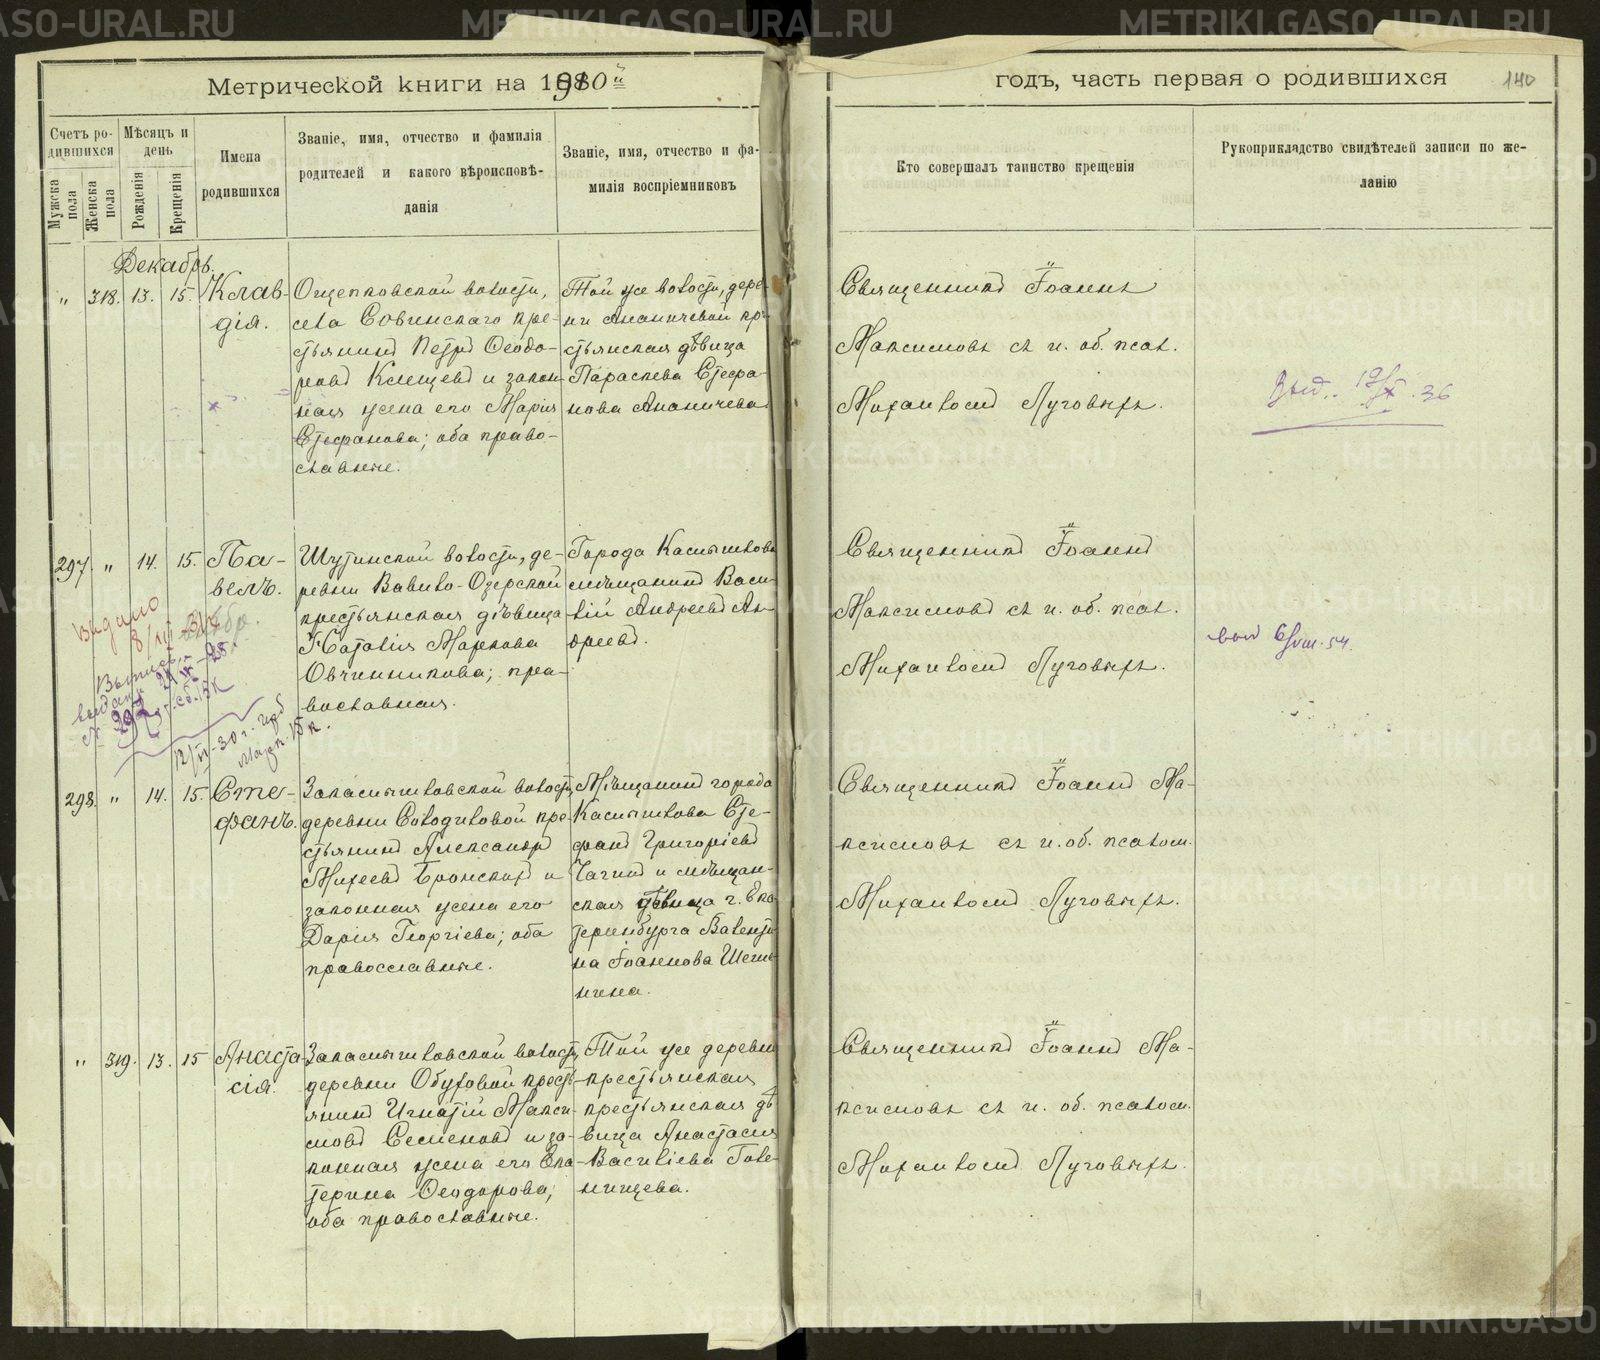 Метрической книги на 1910й
годъ, часть первая о родившихся
140
Счетъ ро-
дившихся
Мужска
пола
Женска
пола
Мѣсяцъ и
день
Рожденія
Крещенія
Имена
родившихся
Званіе, имя, отчество и фамилія
родителей и какого вѣроисповѣ-
данія
Званіе, имя, отчество и фа-
милія воспріемниковъ
Кто совершалъ таинство крещенія
Рукоприкладство свидѣтелей записи по же-
ланію
Декабрь.
" 318. 13. 15. Клав-
дія.
Ощепковской волости,
села Совинскаго кре-
стьянинъ Петръ Ѳеодо-
ровъ Клещевъ и закон-
ная жена его Марія
Стефанова; оба право-
славные.
Той же волости, дерев-
ни Ананичевой кре-
стьянская дѣвица
Параскева Стефа-
нова Ананичева
Священникъ Іоаннъ
Максимовъ съ и. об. псал.
Михаиломъ Луговыхъ.
297. " 14. 15. Па-
велъ.
Шутинской волости, де-
ревни Вавило-Озерской
крестьянская дѣвица
Наталія Маркова
Овчинникова; пра-
вославная.
Города Камышлова
мѣщанинъ Васи-
лій Андреевъ Ан-
дреевъ.
Священникъ Іоаннъ
Максимовъ съ и. об. псал.
Михаиломъ Луговыхъ.
298. " 14. 15. Сте-
фанъ.
Закамышловской волости
деревни Солодиловой кре-
стьянинъ Александръ
Михеевъ Бронскихъ и
законная жена его
Дарія Георгіева; оба
православные.
Мѣщанинъ города
Камышлова Сте-
фанъ Григоріевъ
Чагинъ и мѣщан-
ская дѣвица г. Ека-
теринбурга Валенти-
на Іоаннова
Священникъ Іоаннъ Ма-
ксимовъ съ и. об. псалом.
Михаиломъ Луговыхъ.
" 319. 13. 15 Анаста-
сія.
Закамышловской волости
деревни Обуховой кресть-
янинъ Игнатій Макси-
мовъ Семеновъ и за-
конная жена его Ека-
терина Ѳеодорова;
оба православные.
Той же деревни
крестьянская
крестьянская дѣ-
вица Анастасія
Василіева Голе-
нищева.
Священникъ Іоаннъ Ма-
ксимовъ съ и. об. псалом.
Михаиломъ Луговыхъ.
METRIKI.GASO-URAL.RU